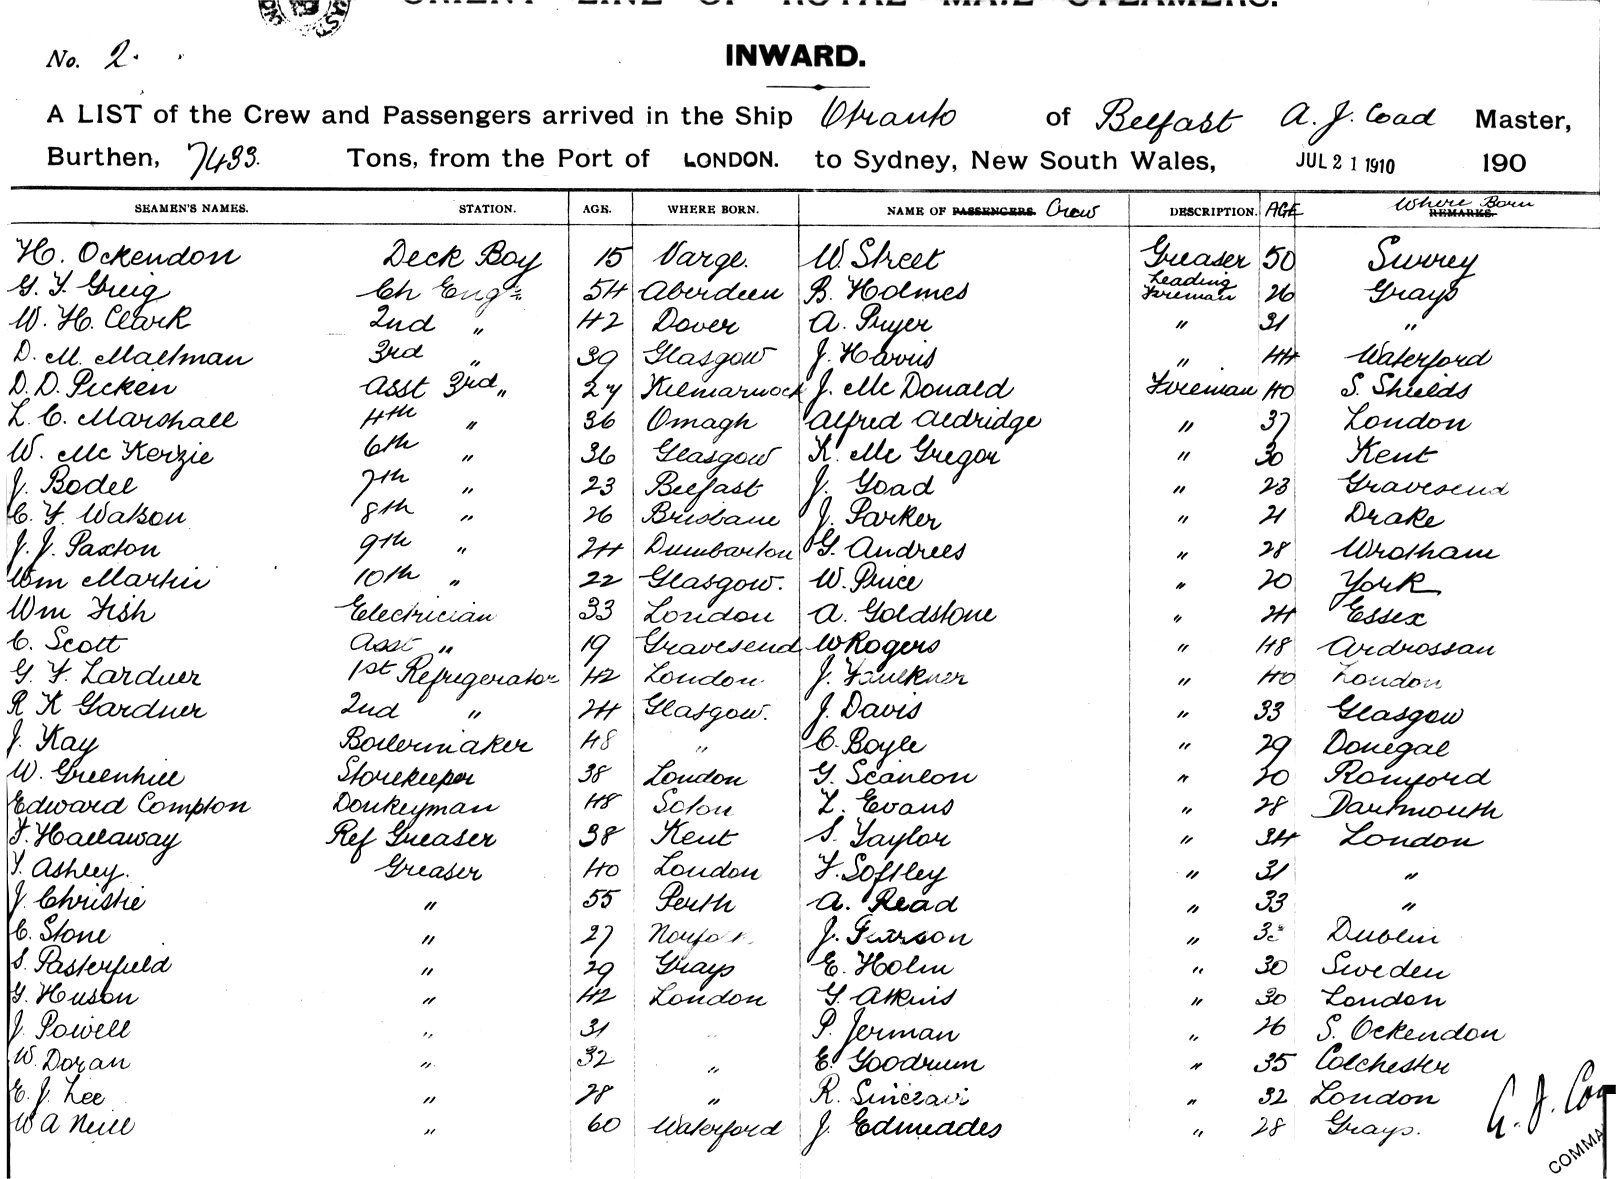 ORIENT LINE OF ROYAL MAIL STEAMERS.
No. 2.
INWARD.
A LIST of the Crew and Passengers arrived in the Ship Otranto of Belfast A. J. Coad Master,
Burthen, 7433. Tons, from the Port of LONDON. to Sydney, New South Wales, JUL 21 1910 190
SEAMEN'S NAMES. STATION. AGE. WHERE BORN. NAME OF PASSENGERS. Crew DESCRIPTION. AGE REMARKS. Where Born
H. Ockendon Deck Boy 15 Varge. W. Street Greaser 50 Surrey
G. F. Greig Ch Engr 54 Aberdeen B. Holmes Leading Fireman 26 Grays
W. H. Clark 2nd " 42 Dover A. Pryer " 31 "
D. M. Maltman 3rd " 39 Glasgow J. Harris " 44 Waterford
D. D. Picken Asst 3rd " 27 Kilmarnock J. Mc Donald Fireman 40 S. Shields
L. C. Marshall 4th " 36 Omagh Alfred Aldridge " 37 London
W. Mc Kerzie 6th " 36 Glasgow K. Mc Gregor " 30 Kent
J. Bodel 7th " 23 Belfast J. Goad " 23 Gravesend
C. F. Watson 8th " 26 Brisbane J. Parker " 21 Drake
J. J. Paxton 9th " 24 Dumbarton G. Andrees " 28 Wrotham
Wm Martin 10th " 22 Glasgow. W. Price " 20 York
Wm Fish Electrician 33 London A. Goldstone " 24 Essex
C. Scott Asst " 19 Gravesend W Rogers " 48 Ardrossan
G. F. Lardner 1st Refrigerator 42 London J. Faulkner " 40 London
R K Gardner 2nd " 24 Glasgow. J. Davis " 33 Glasgow
J. Kay Boilermaker 48 " C. Boyle " 29 Donegal
W. Greenhill Storekeeper 38 London G. Scanlon " 20 Romford
Edward Compton Donkeyman 48 Soton L. Evans " 28 Dartmouth
F. Hallaway Ref Greaser 38 Kent S. Taylor " 34 London
T. Ashley. Greaser 40 London F. Softley " 31 "
J. Christie " 55 Perth A. Read " 33 "
C. Stone " 27 Norfolk J. Pearson " Dublin
S. Pasterfield " 29 Grays E. Holm " 30 Sweden
G. Huson " 42 London G. Atkins " 30 London
J. Powell " 31 " P. Jerman " 26 S. Ockendon
W. Doran " 32 " E. Goodrum " 35 Colchester
E. J. Lee " 28 " R. Sinclair " 32 London
W A Neill " 60 Waterford J. Edmeades " 28 Grays.
A. J. Coa
COMMA